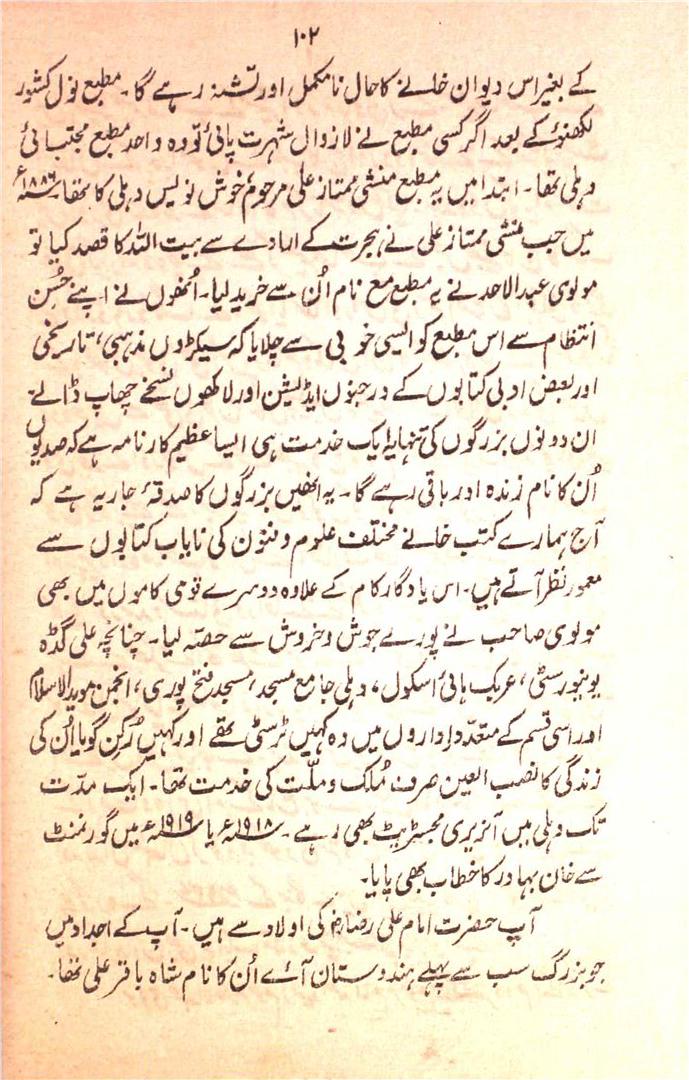 ۱۰۲
کے بغیر اس دیوان خانے کا حال نامکمل اور تشنہ رہے گا۔ مطبع نول کشور
لکھنؤ کے بعد اگر کسی مطبع نے لازوال شہرت پائی تو وہ واحد مطبع مجتبائی
دہلی تھا۔ ابتدا میں یہ مطبع منشی ممتاز علی مرحوم خوش نویس دہلی کا تھا ۱۸۸۶ء
میں جب منشی ممتاز علی نے ہجرت کے ارادے سے بیت اللہ کا قصد کیا تو
مولوی عبدالاحد نے یہ مطبع مع نام اُن سے خرید لیا۔ اُنھوں نے اپنے حُسن
انتظام سے اس مطبع کو ایسی خوبی سے چلایا کہ سیکڑوں مذہبی، تاریخی
اور بعض ادبی کتابوں کے درجنوں ایڈیشن اور لاکھوں نسخے چھاپ ڈالے۔
ان دونوں بزرگوں کی تنہا یہ ایک خدمت ہی ایسا عظیم کارنامہ ہے کہ صدیوں
اُن کا نام زندہ اور باقی رہے گا۔ یہ انھیں بزرگوں کا صدقۂ جاریہ ہے کہ
آج ہمارے کتب خانے مختلف علوم و فنون کی نایاب کتابوں سے
معمور نظر آتے ہیں۔ اس یادگار کام کے علاوہ دوسرے قومی کاموں میں بھی
مولوی صاحب نے پورے جوش و خروش سے حصّہ لیا۔ چنانچہ علی گڈہ
یونیورسٹی، عربک ہائی اسکول، دہلی جامع مسجد، مسجد فتح پوری، انجمن موید الاسلام
اور اسی قسم کے متعدّد اداروں میں وہ کہیں ٹرسٹی تھے اور کہیں رُکن گویا اُن کی
زندگی کا نصب العین صرف مُلک و ملّت کی خدمت تھا۔ ایک مدّت
تک دہلی میں آنریری مجسٹریٹ بھی رہے۔ ۱۹۱۸ء یا ۱۹۱۹ء میں گورنمنٹ
سے خان بہادر کا خطاب بھی پایا۔
آپ حضرت امام علی رضا رض کی اولاد سے ہیں۔ آپ کے اجداد میں
جو بزرگ سب سے پہلے ہندوستان آئے اُن کا نام شاہ باقر علی تھا۔